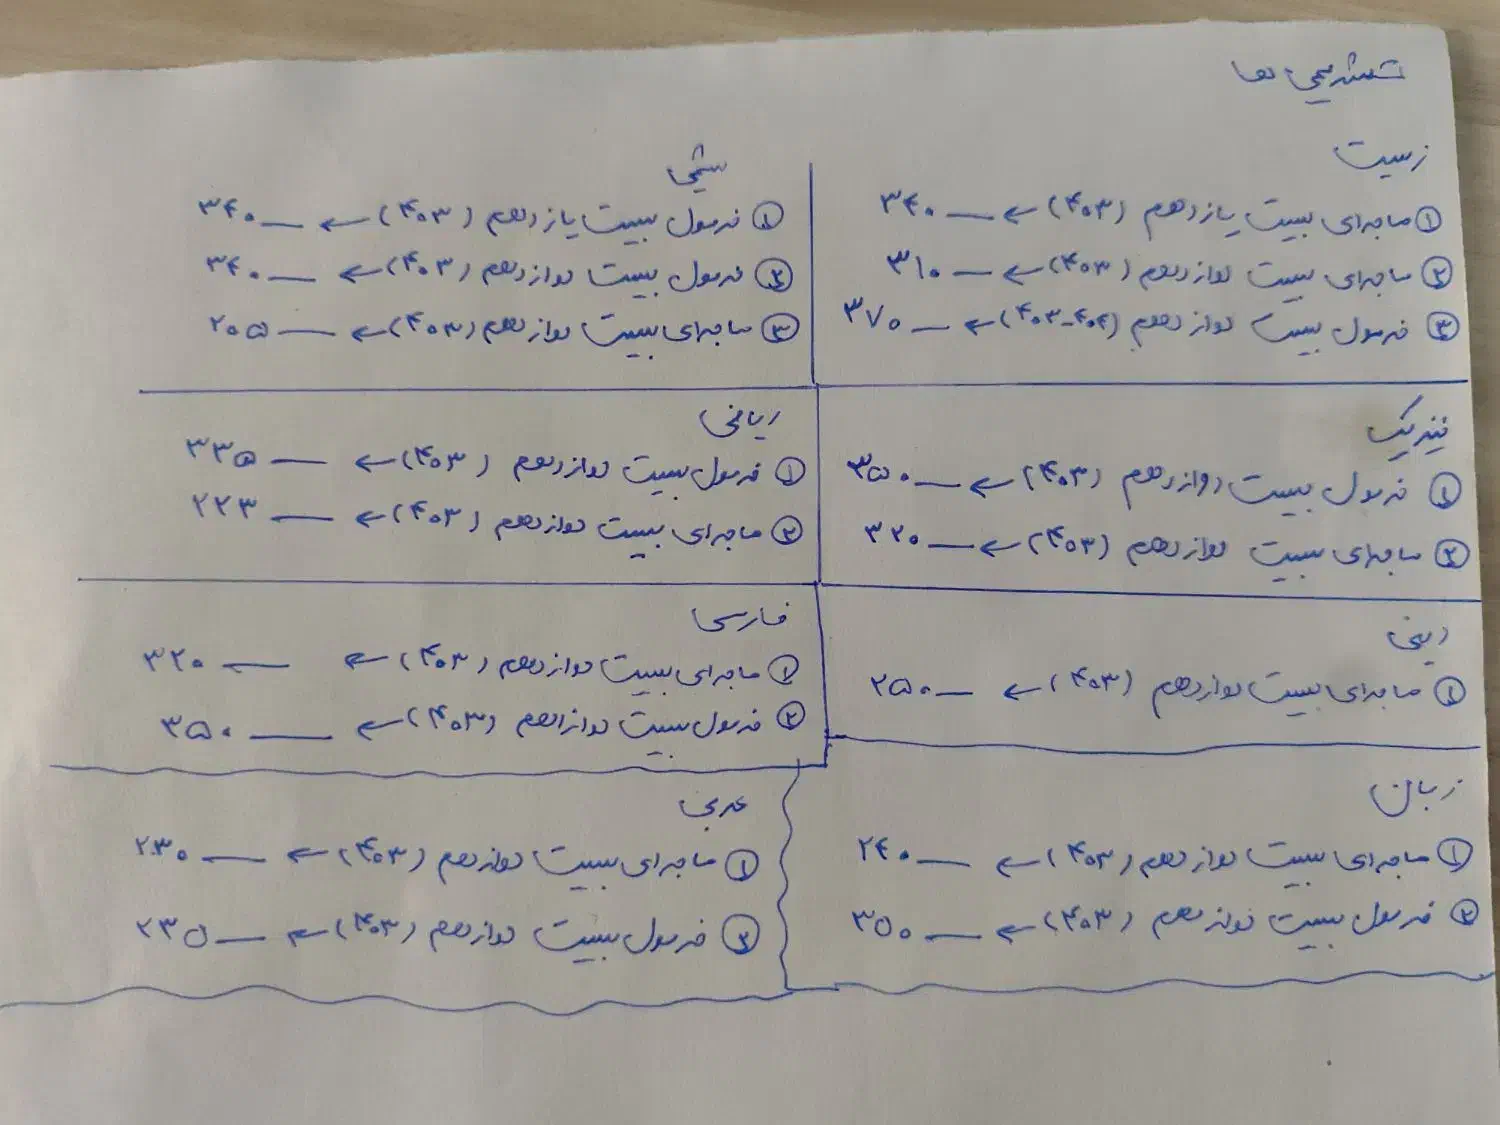 تشریحی ها
زیست
① ماجرای بیست یازدهم (۴۰۳) ← — ۳۴۰
② ماجرای بیست دوازدهم (۴۰۳) ← — ۳۱۰
③ فرمول بیست دوازدهم (۴۰۴-۴۰۳) ← — ۳۷۰
شیمی
① فرمول بیست یازدهم (۴۰۳) ← — ۳۴۰
② فرمول بیست دوازدهم (۴۰۳) ← — ۳۴۰
③ ماجرای بیست دوازدهم (۴۰۳) ← — ۲۰۵
فیزیک
① فرمول بیست دوازدهم (۴۰۳) ← — ۳۵۰
② ماجرای بیست دوازدهم (۴۰۳) ← — ۳۲۰
ریاضی
① فرمول بیست دوازدهم (۴۰۳) ← — ۳۳۵
② ماجرای بیست دوازدهم (۴۰۳) ← — ۲۲۳
دینی
① ماجرای بیست دوازدهم (۴۰۳) ← — ۲۵۰
فارسی
① ماجرای بیست دوازدهم (۴۰۳) ← — ۳۲۰
② فرمول بیست دوازدهم (۴۰۳) ← — ۳۵۰
زبان
① ماجرای بیست دوازدهم (۴۰۳) ← — ۲۴۰
② فرمول بیست دوازدهم (۴۰۳) ← — ۳۵۰
عربی
① ماجرای بیست دوازدهم (۴۰۳) ← — ۲۳۰
② فرمول بیست دوازدهم (۴۰۳) ← — ۲۳۵